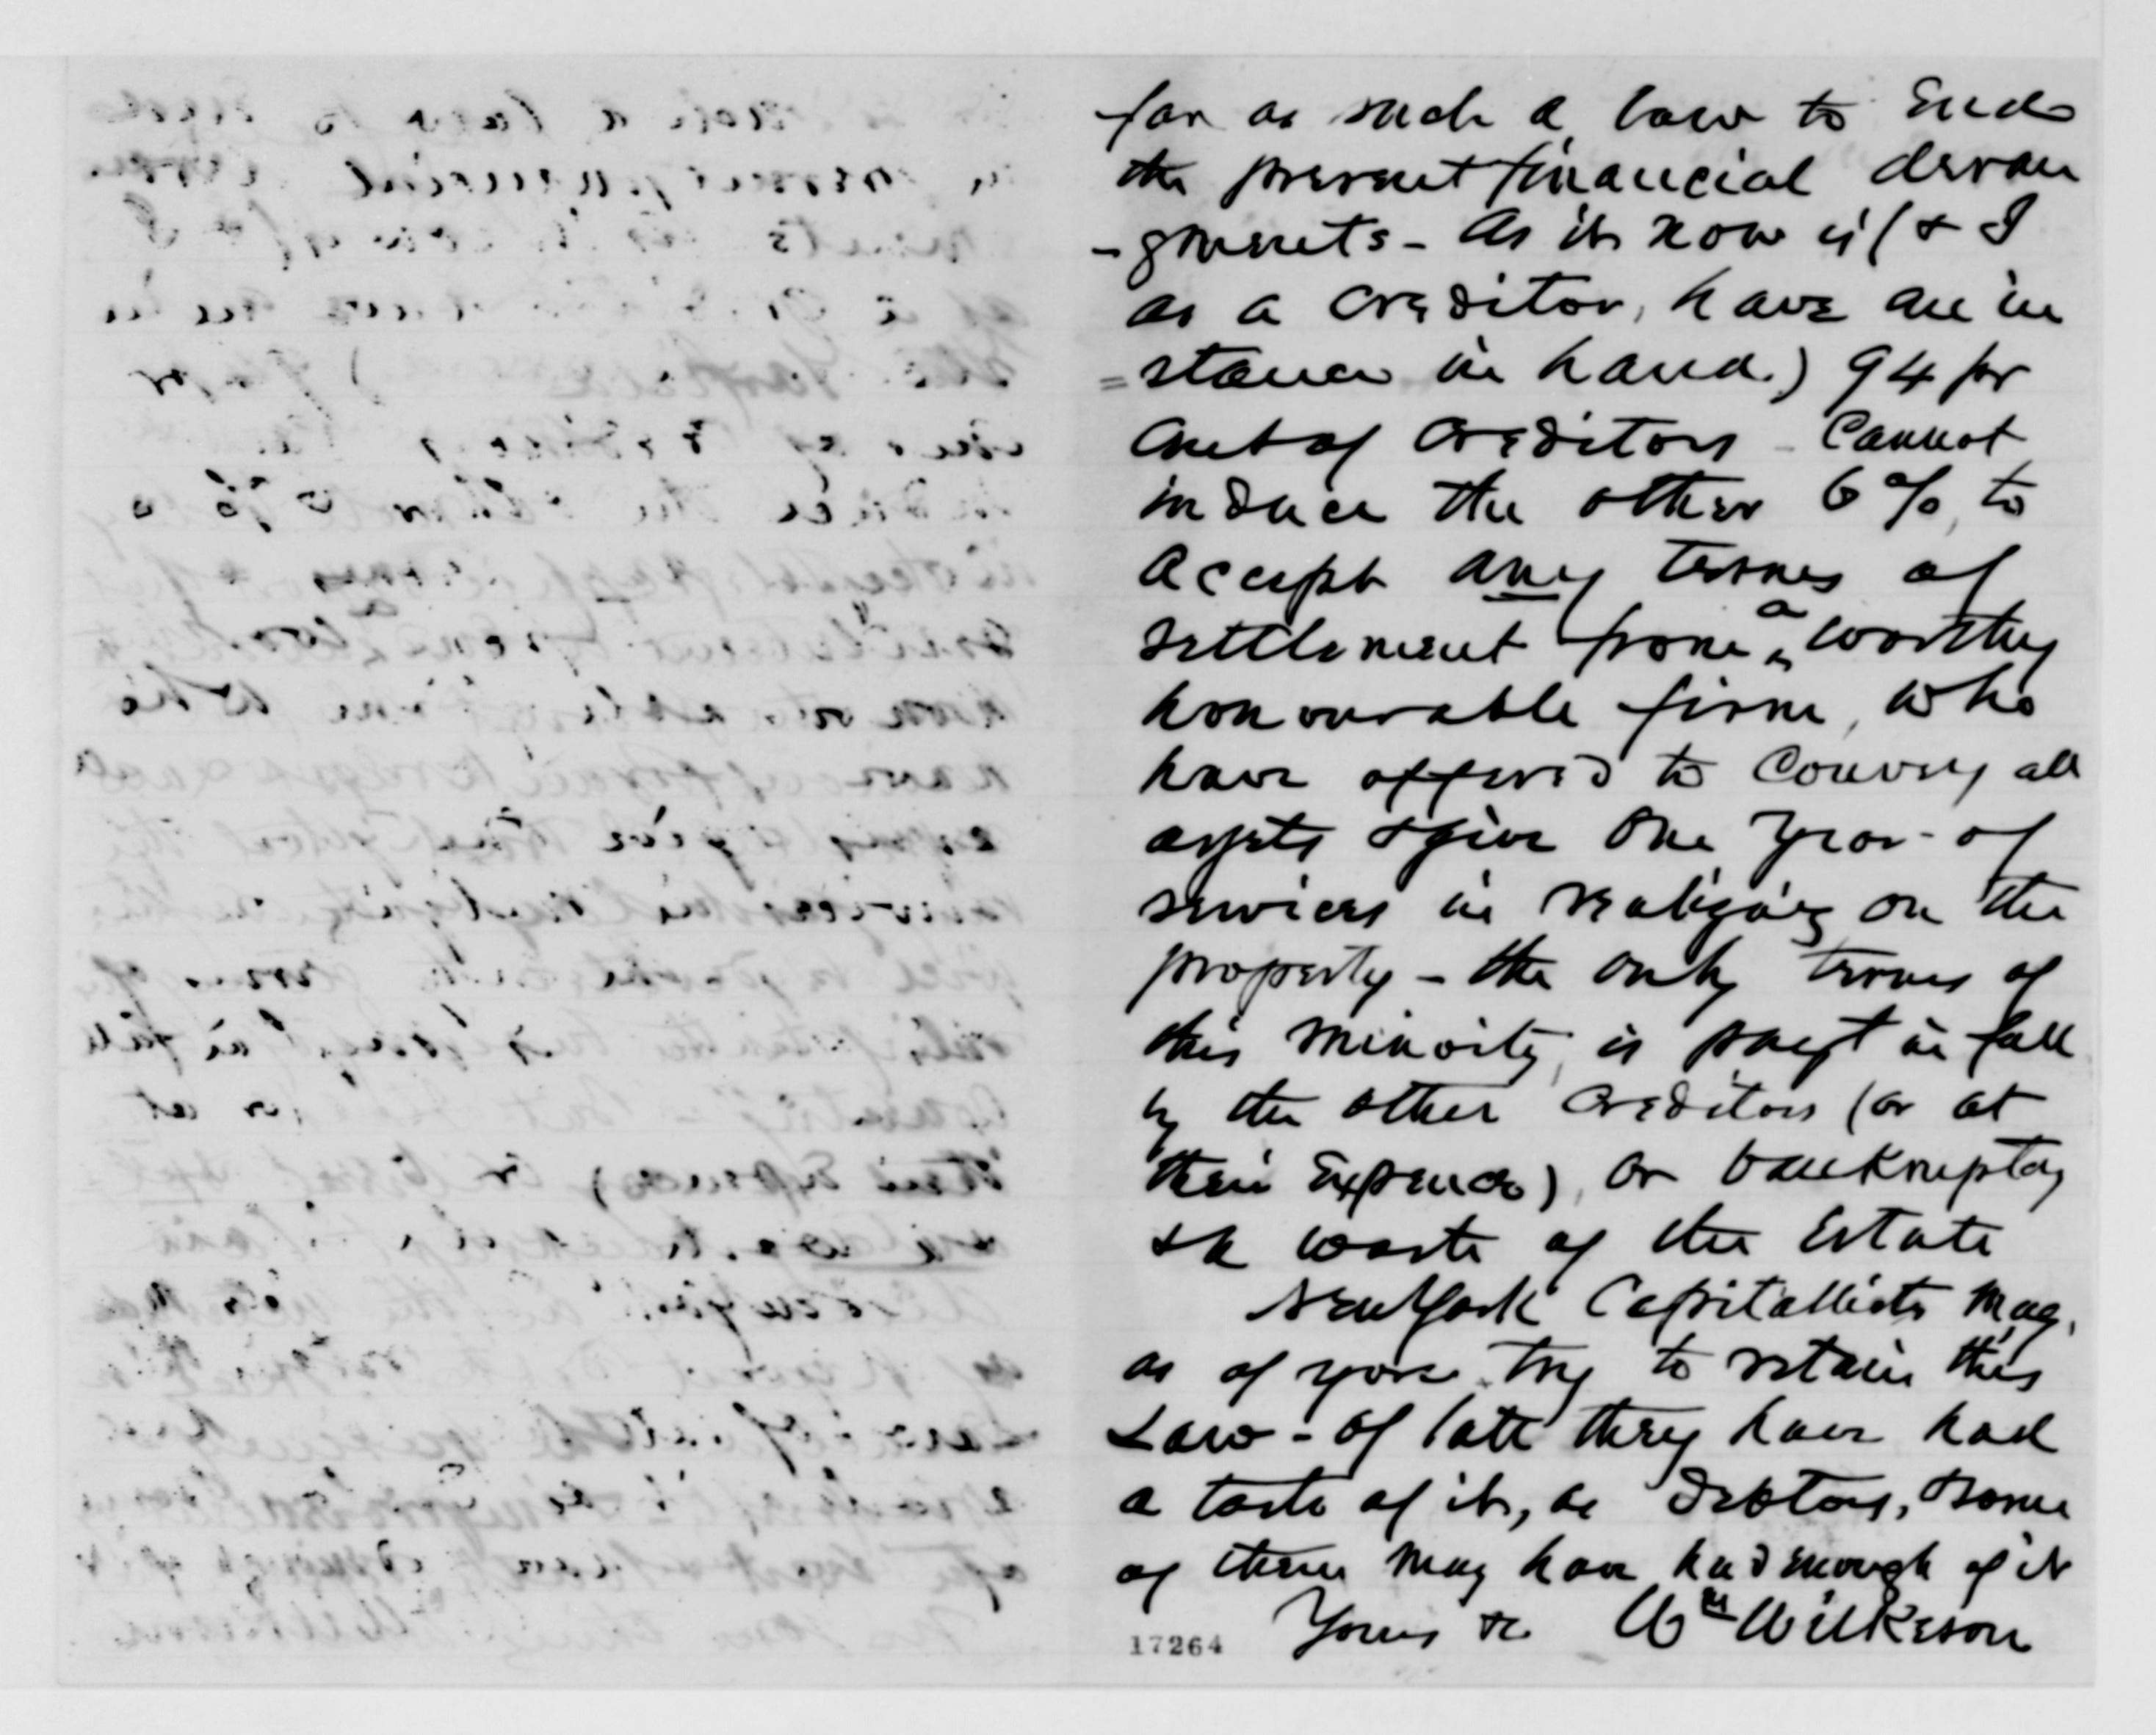 far as such a law to End
the present financial deran
-gments - As it now is (& I
as a creditor, have an in
=stance in hand.) 94 per
Cent of Creditors - Cannot
induce the other 6 %, to
accept any terms of
settlement from a worthy
honourable firm, who
have offered to Convey all
assets & give One Year of
services in realizing on the
property - the only terms of
this minority, is paym't in full
by the other Creditors (or at
their Expense), or bankruptcy
& waste of the Estate
New York Capitallists may,
as of yore try to retain this
Law - of late they have had
a taste of it, as Debtors, & some
of them may have had enough of it
Yours &c Wm Wilkeson
17264